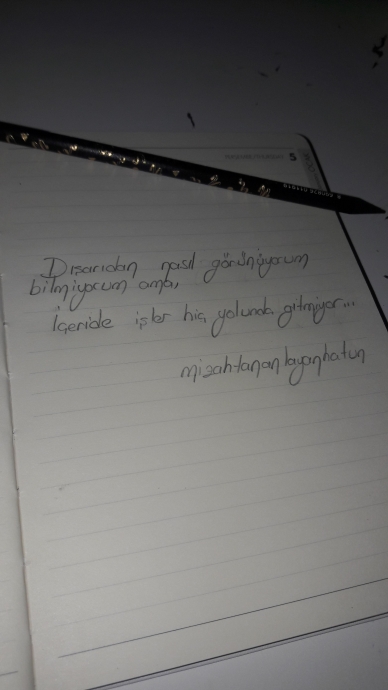 Dışarıdan nasıl görünüyorum
bilmiyorum ama,
İçeride işler hiç yolunda gitmiyor...
mizahtananlayanhatun